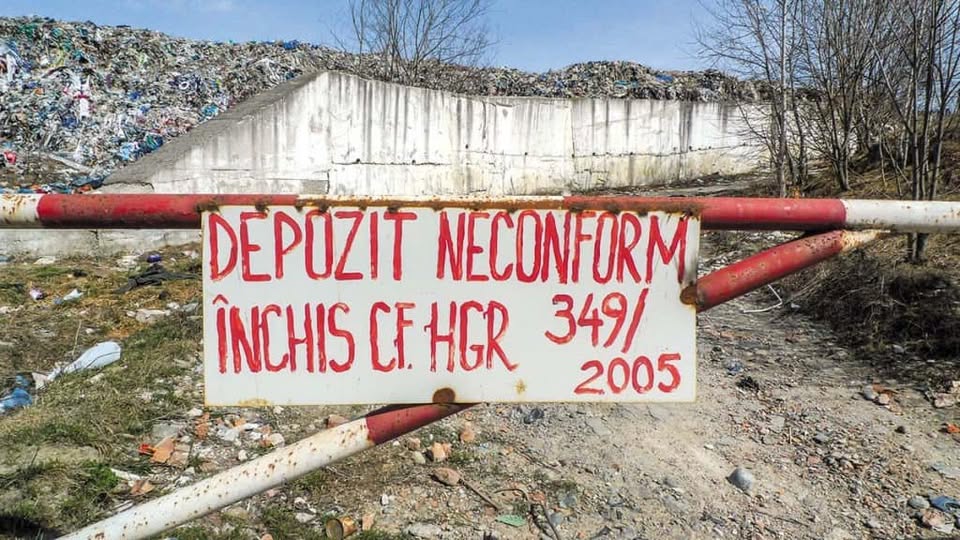 DEPOZIT NECONFORM
ÎNCHIS CF. HGR 349/
2005